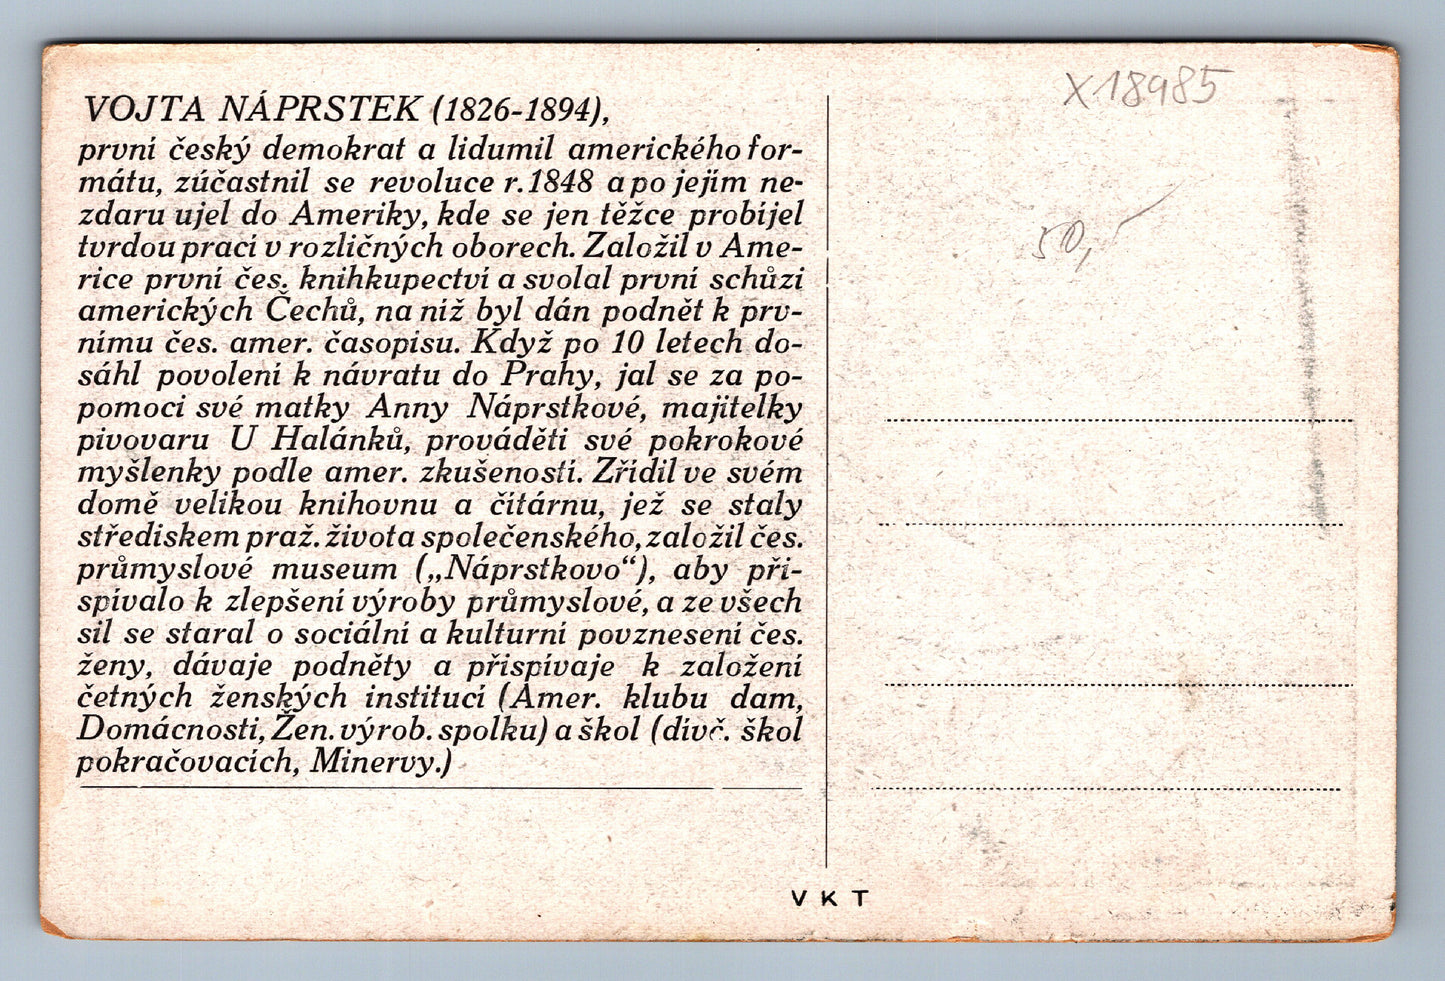 VOJTA NÁPRSTEK (1826-1894),
první český demokrat a lidumil amerického for-
mátu, zúčastnil se revoluce r. 1848 a po jejím ne-
zdaru ujel do Ameriky, kde se jen těžce probíjel
tvrdou prací v rozličných oborech. Založil v Ame-
rice první čes. knihkupectví a svolal první schůzi
amerických Čechů, na níž byl dán podnět k prv-
nímu čes. amer. časopisu. Když po 10 letech do-
sáhl povolení k návratu do Prahy, jal se za po-
pomoci své matky Anny Náprstkové, majitelky
pivovaru U Halánků, prováděti své pokrokové
myšlenky podle amer. zkušeností. Zřídil ve svém
domě velikou knihovnu a čítárnu, jež se staly
střediskem praž. života společenského, založil čes.
průmyslové museum („Náprstkovo“), aby při-
spívalo k zlepšení výroby průmyslové, a ze všech
sil se staral o sociální a kulturní povznesení čes.
ženy, dávaje podněty a přispívaje k založení
četných ženských institucí (Amer. klubu dam,
Domácnosti, Žen. výrob. spolku) a škol (dívč. škol
pokračovacích, Minervy.)
X18985
50,-
V K T